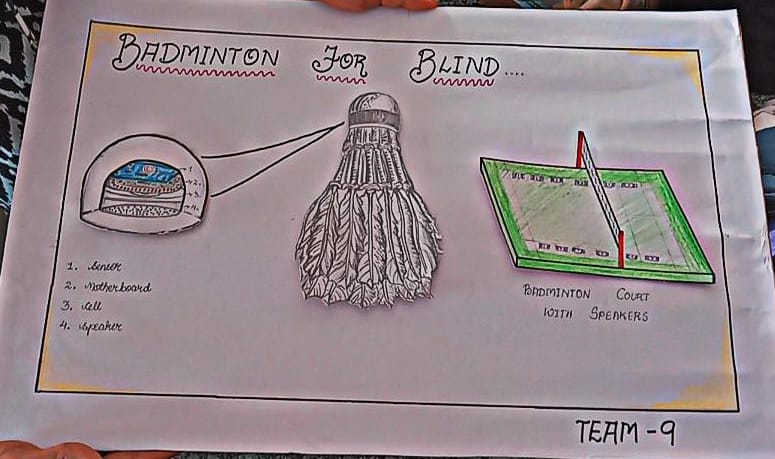 BADMINTON FOR BLIND....
1.
2.
3.
4.
1. Sensor
2. Motherboard
3. Cell
4. Speaker
BADMINTON COURT
WITH SPEAKERS
TEAM - 9